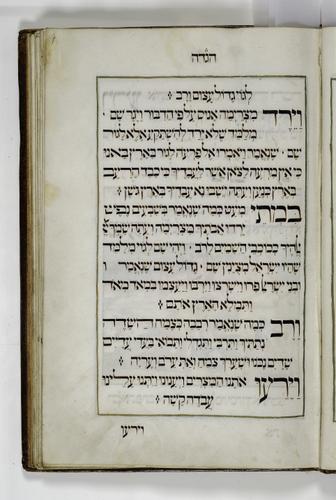 הגדה
לגוי גדול עצום ורב
וירד מצרימה אנוס על פי הדבור ויגר שם
מלמד שלא ירד להשתקע אלא לגור
שם שנאמר ויאמרו אל פרעה לגור בארץ באנו
כי אין מרעה לצאן אשר לעבדיך כי כבד הרעב
בארץ כנען ועתה ישבו נא עבדיך בארץ גשן
במתי מעט כמה שנאמר בשבעים נפש
ירדו אבתיך מצרימה ועתה שמך יי
אלהיך ככוכבי השמים לרב ויהי שם לגוי מלמד
שהיו ישראל מצוינין שם גדול עצום שנאמר
ובני ישראל פרו וישרצו וירבו ויעצמו במאד מאד
ותמלא הארץ אתם
ורב כמה שנאמר רבבה כצמח השדה
נתתיך ותרבי ותגדלי ותבאי בעדי עדיים
שדים נכנו ושערך צמח ואת ערם ועריה
וירעו אתנו המצרים ויענונו ויתנו עלינו
עבדה קשה
וירעו